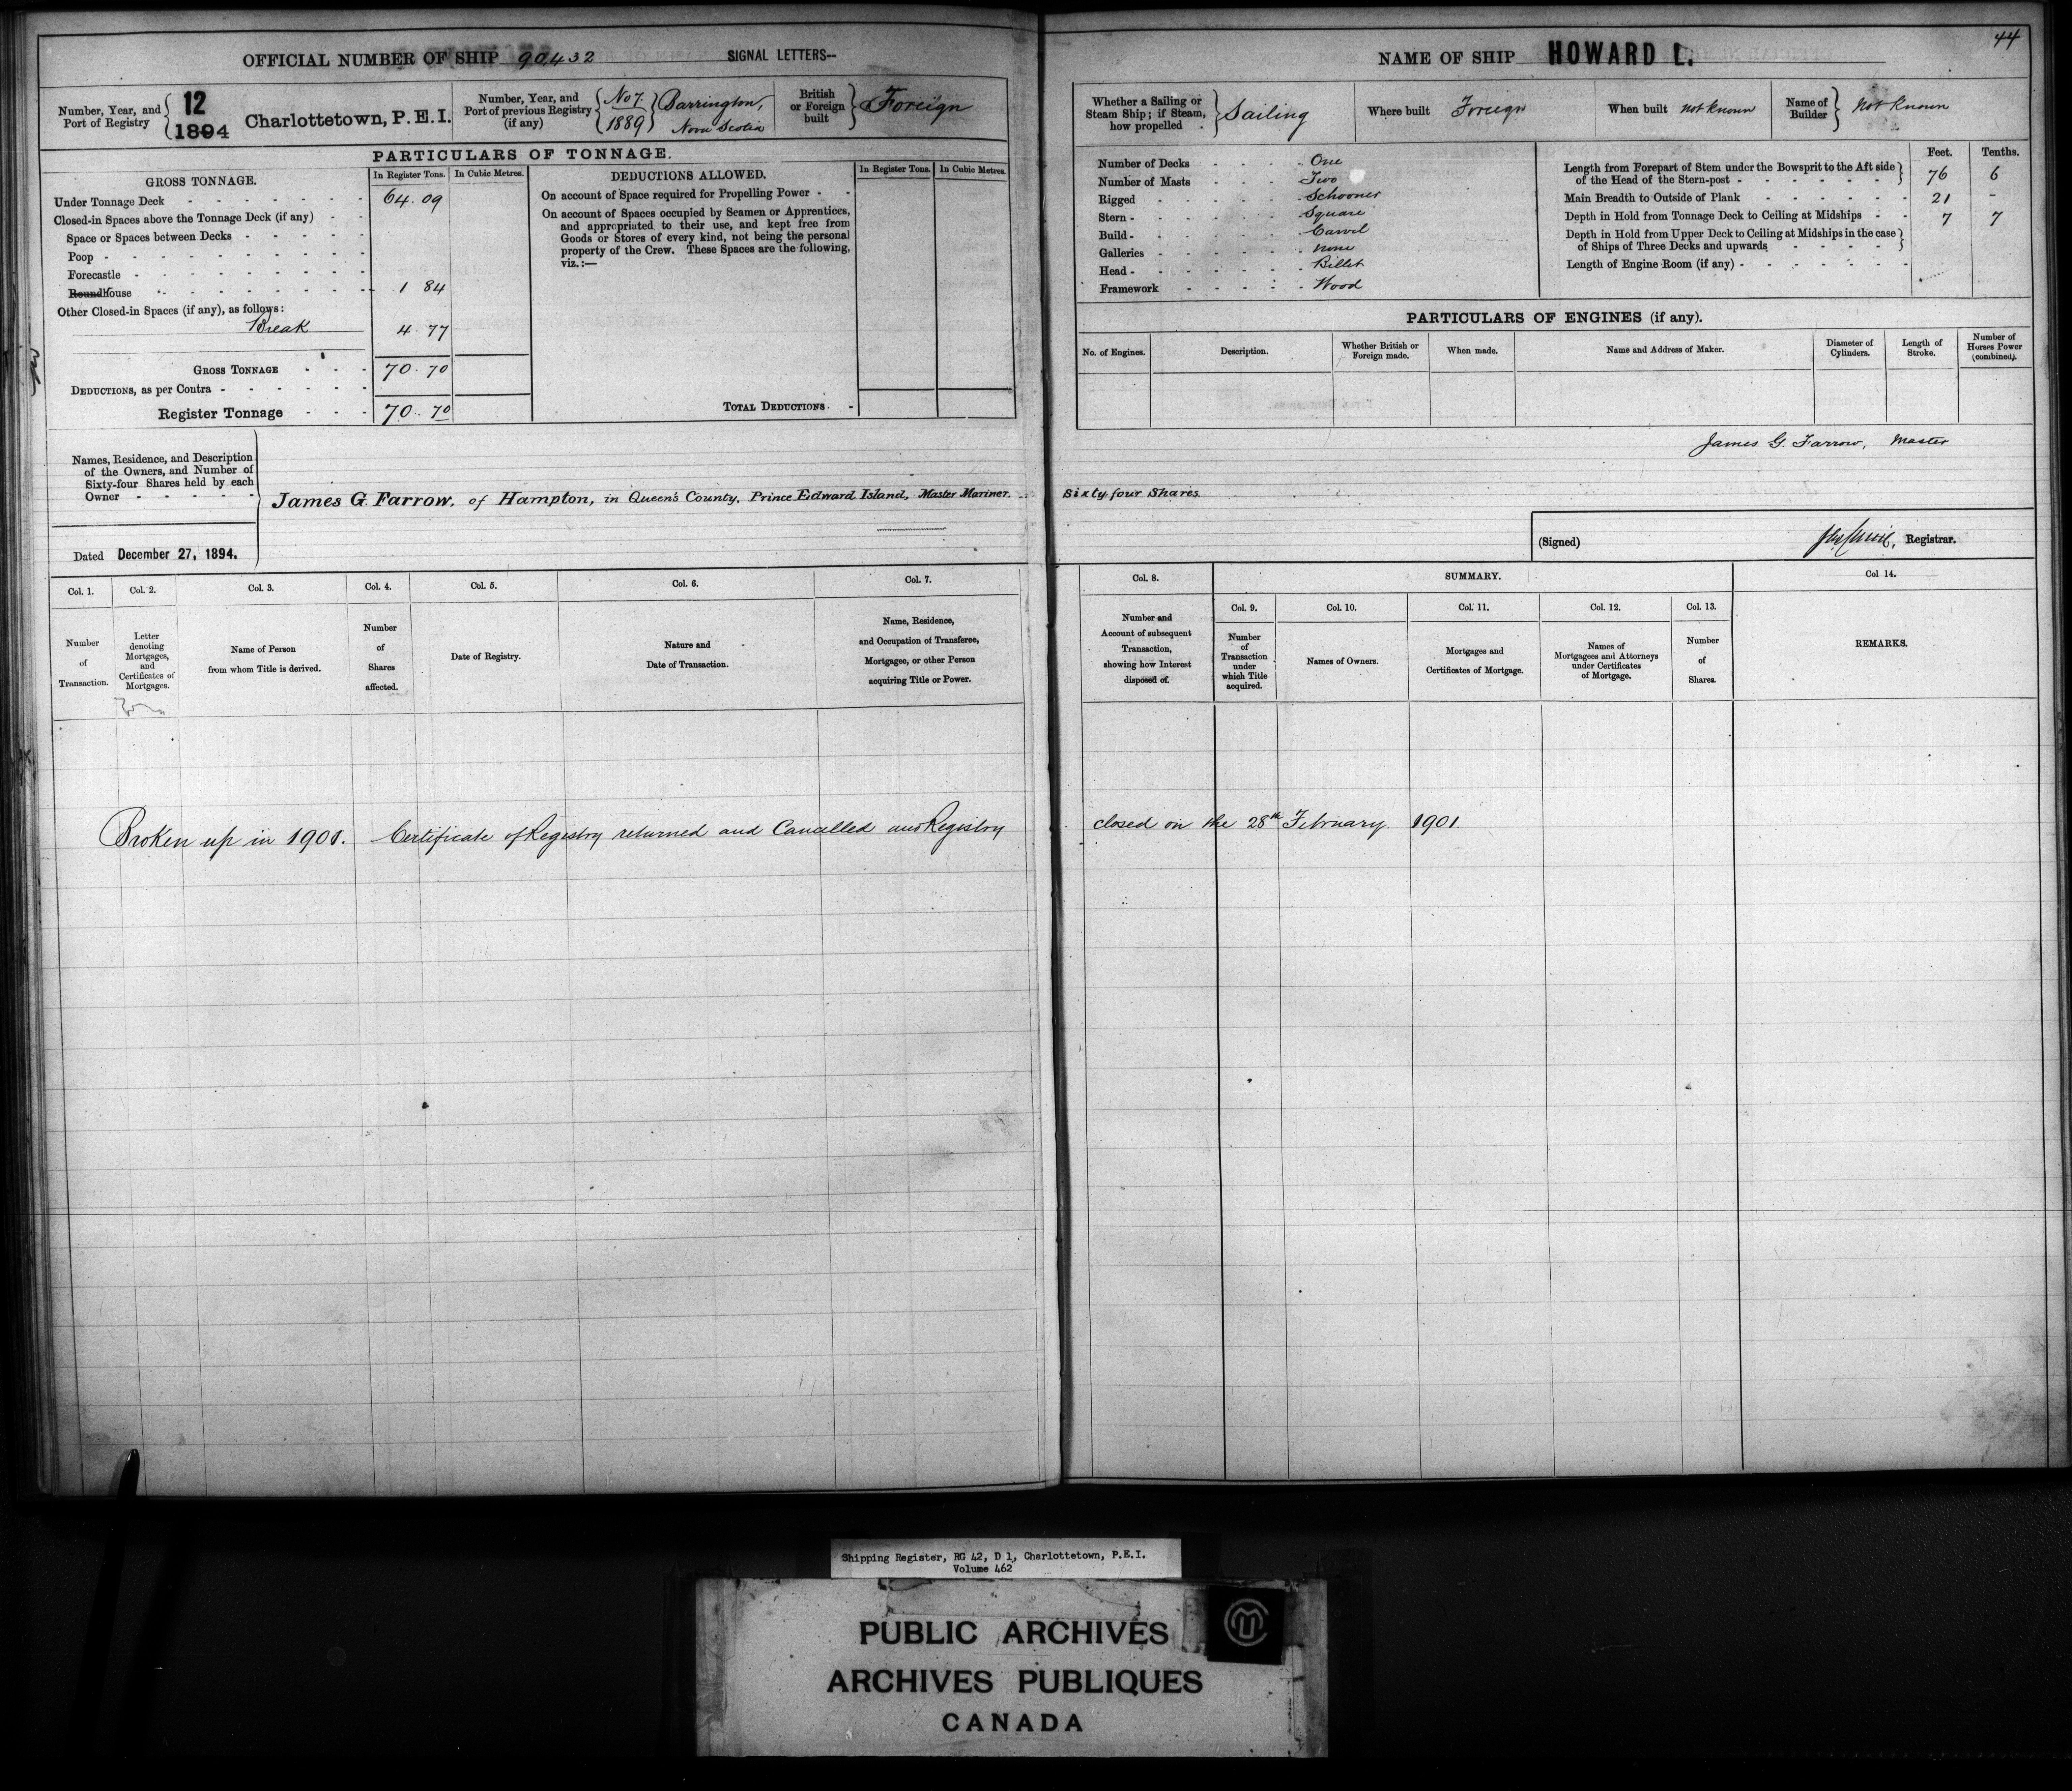 OFFICIAL NUMBER OF SHIP 90,432 SIGNAL LETTERS--
Number, Year, and Port of Registry 12 1894 Charlottetown, P.E.I.
Number, Year, and Port of previous Registry (if any) No 7. 1889 Barrington, Nova Scotia
British or Foreign built Foreign
PARTICULARS OF TONNAGE.
GROSS TONNAGE. In Register Tons. In Cubic Metres.
Under Tonnage Deck 64.09
Closed-in Spaces above the Tonnage Deck (if any)
Space or Spaces between Decks
Poop
Forecastle
Roundhouse 1 84
Other Closed-in Spaces (if any), as follows:
Break 4.77
GROSS TONNAGE 70.70
DEDUCTIONS, as per Contra
Register Tonnage 70.70
DEDUCTIONS ALLOWED. In Register Tons. In Cubic Metres.
On account of Space required for Propelling Power
On account of Spaces occupied by Seamen or Apprentices,
and appropriated to their use, and kept free from
Goods or Stores of every kind, not being the personal
property of the Crew. These Spaces are the following,
viz.:—
TOTAL DEDUCTIONS.
Names, Residence, and Description
of the Owners, and Number of
Sixty-four Shares held by each
Owner
James G. Farrow, of Hampton, in Queen's County, Prince Edward Island, Master Mariner.
Dated December 27, 1894.
Col. 1. Col. 2. Col. 3. Col. 4. Col. 5. Col. 6. Col. 7.
Number of Transaction.
Letter denoting Mortgages, and Certificates of Mortgages.
Name of Person from whom Title is derived.
Number of Shares affected.
Date of Registry.
Nature and Date of Transaction.
Name, Residence, and Occupation of Transferee, Mortgagee, or other Person acquiring Title or Power.
Broken up in 1901. Certificate of Registry returned and Cancelled and Registry
44
NAME OF SHIP HOWARD L.
Whether a Sailing or Steam Ship; if Steam, how propelled Sailing
Where built Foreign
When built not known
Name of Builder not known
Number of Decks One
Number of Masts Two
Rigged Schooner
Stern Square
Build Carvel
Galleries none
Head Billet
Framework Wood
Feet. Tenths.
Length from Forepart of Stem under the Bowsprit to the Aft side
of the Head of the Stern-post 76 6
Main Breadth to Outside of Plank 21 -
Depth in Hold from Tonnage Deck to Ceiling at Midships 7 7
Depth in Hold from Upper Deck to Ceiling at Midships in the case
of Ships of Three Decks and upwards
Length of Engine Room (if any)
PARTICULARS OF ENGINES (if any).
No. of Engines. Description. Whether British or Foreign made. When made. Name and Address of Maker. Diameter of Cylinders. Length of Stroke. Number of Horses Power (combined).
James G. Farrow, Master
Sixty four Shares
(Signed) Registrar.
Col. 8. SUMMARY. Col 14.
Col. 9. Col. 10. Col. 11. Col. 12. Col. 13.
Number and Account of subsequent Transaction, showing how Interest disposed of.
Number of Transaction under which Title acquired.
Names of Owners.
Mortgages and Certificates of Mortgage.
Names of Mortgagees and Attorneys under Certificates of Mortgage.
Number of Shares.
REMARKS.
closed on the 28th February 1901.
Shipping Register, RG 42, D 1, Charlottetown, P.E.I.
Volume 462
PUBLIC ARCHIVES
ARCHIVES PUBLIQUES
CANADA